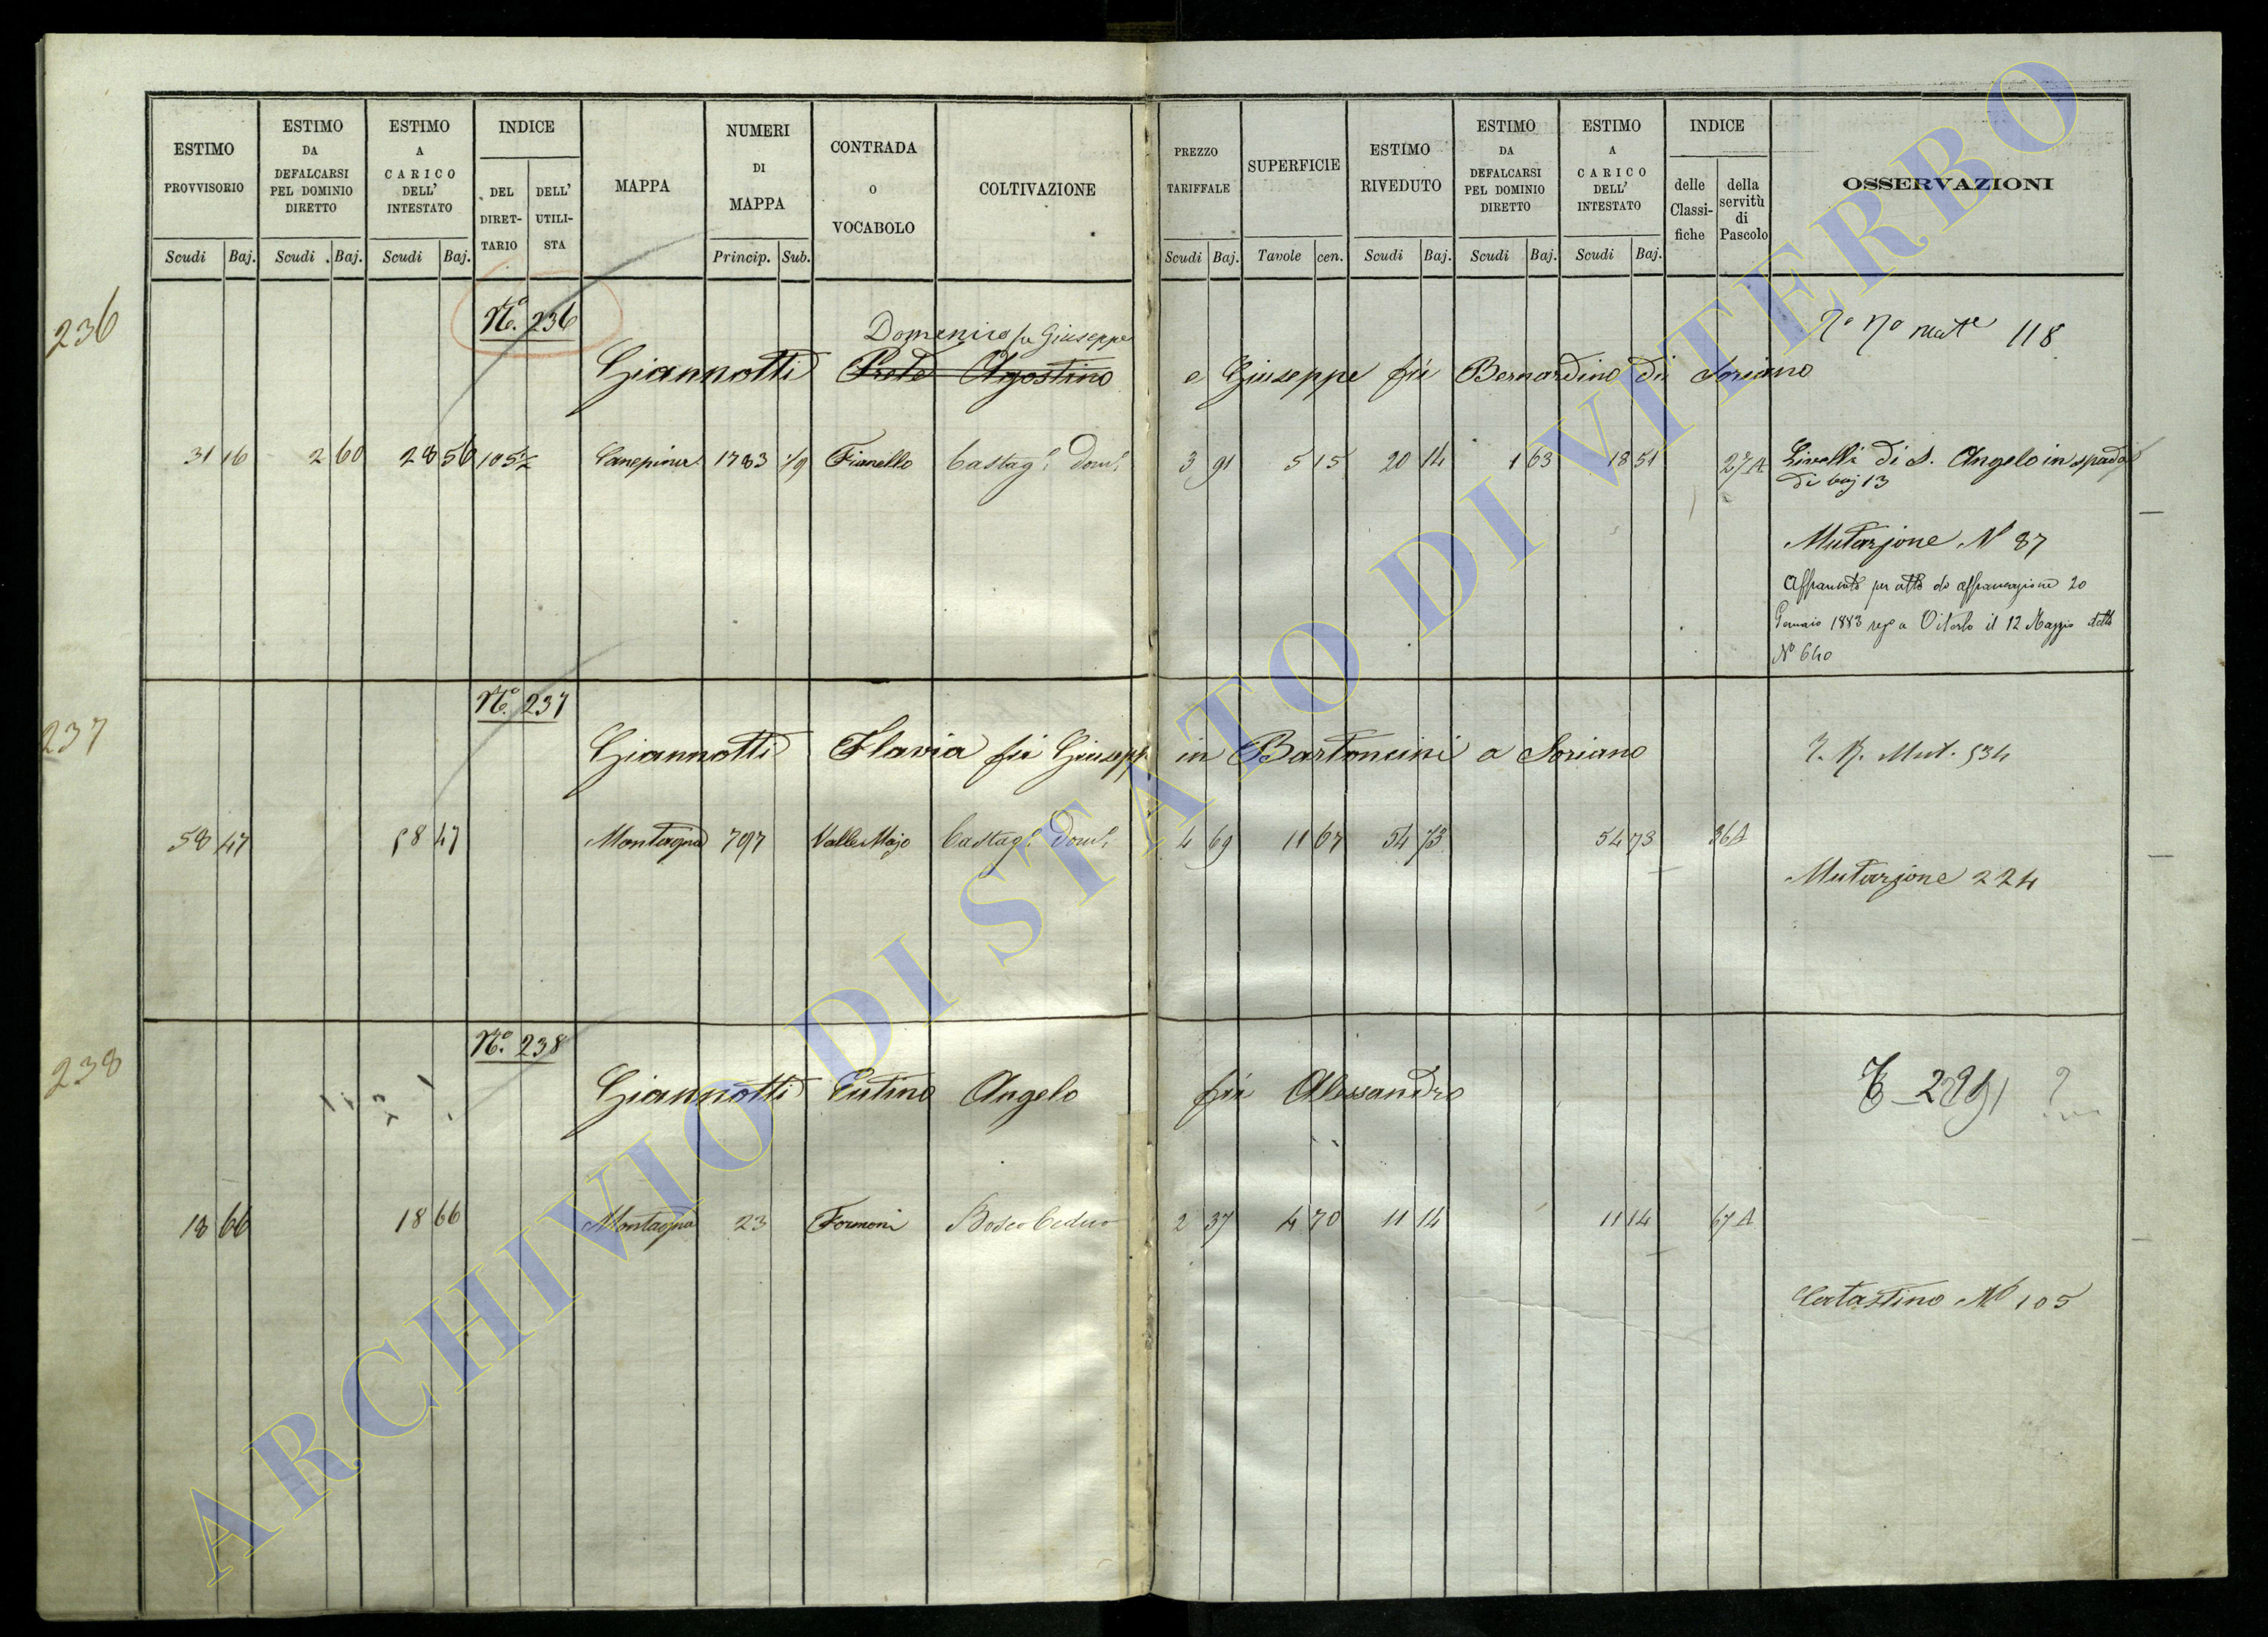 ESTIMO PROVVISORIO
ESTIMO DA DEFALCARSI PEL DOMINIO DIRETTO
ESTIMO A CARICO DELL' INTESTATO
INDICE
DEL DIRETTARIO
DELL' UTILISTA
MAPPA
NUMERI DI MAPPA
CONTRADA O VOCABOLO
COLTIVAZIONE
PREZZO TARIFFALE
SUPERFICIE
ESTIMO RIVEDUTO
ESTIMO DA DEFALCARSI PEL DOMINIO DIRETTO
ESTIMO A CARICO DELL' INTESTATO
INDICE
delle Classifiche
della servitù di Pascolo
OSSERVAZIONI
Scudi Baj. Scudi Baj. Scudi Baj. Princip. Sub. Scudi Baj. Tavole cen. Scudi Baj. Scudi Baj. Scudi Baj.
236
N.º 236
Domenico fu Giuseppe
118
Giannotti Prete Agostino e Giuseppe fu Bernardino di Soriano
31 16 2 60 28 56 105½ 1783 1/9 Fianello Castag. 3 91 5 15 20 14 1 63 18 51 27 A Livello di S. Angelo in spada
di baj 13
Mutazione Nº 87
Affrancato per atto di affrancazione 20
Gennaio 1883 rego a Viterbo il 12 Maggio detto
Nº 640
237
N.º 237
Giannotti Flavia fu Giuseppe in Bartoncini a Soriano Mut. 534
58 47 58 47 Montagna 797 Valle Majo Castag. 4 69 11 67 54 73 54 73 36 A
Mutazione 224
238
N.º 238
Giannotti Angelo fu Alessandro
18 66 18 66 Montagna 23 Formoni Bosco Ceduo 2 37 4 70 11 14 11 14 67 A
Catastino Nº 105
ARCHIVIO DI STATO DI VITERBO